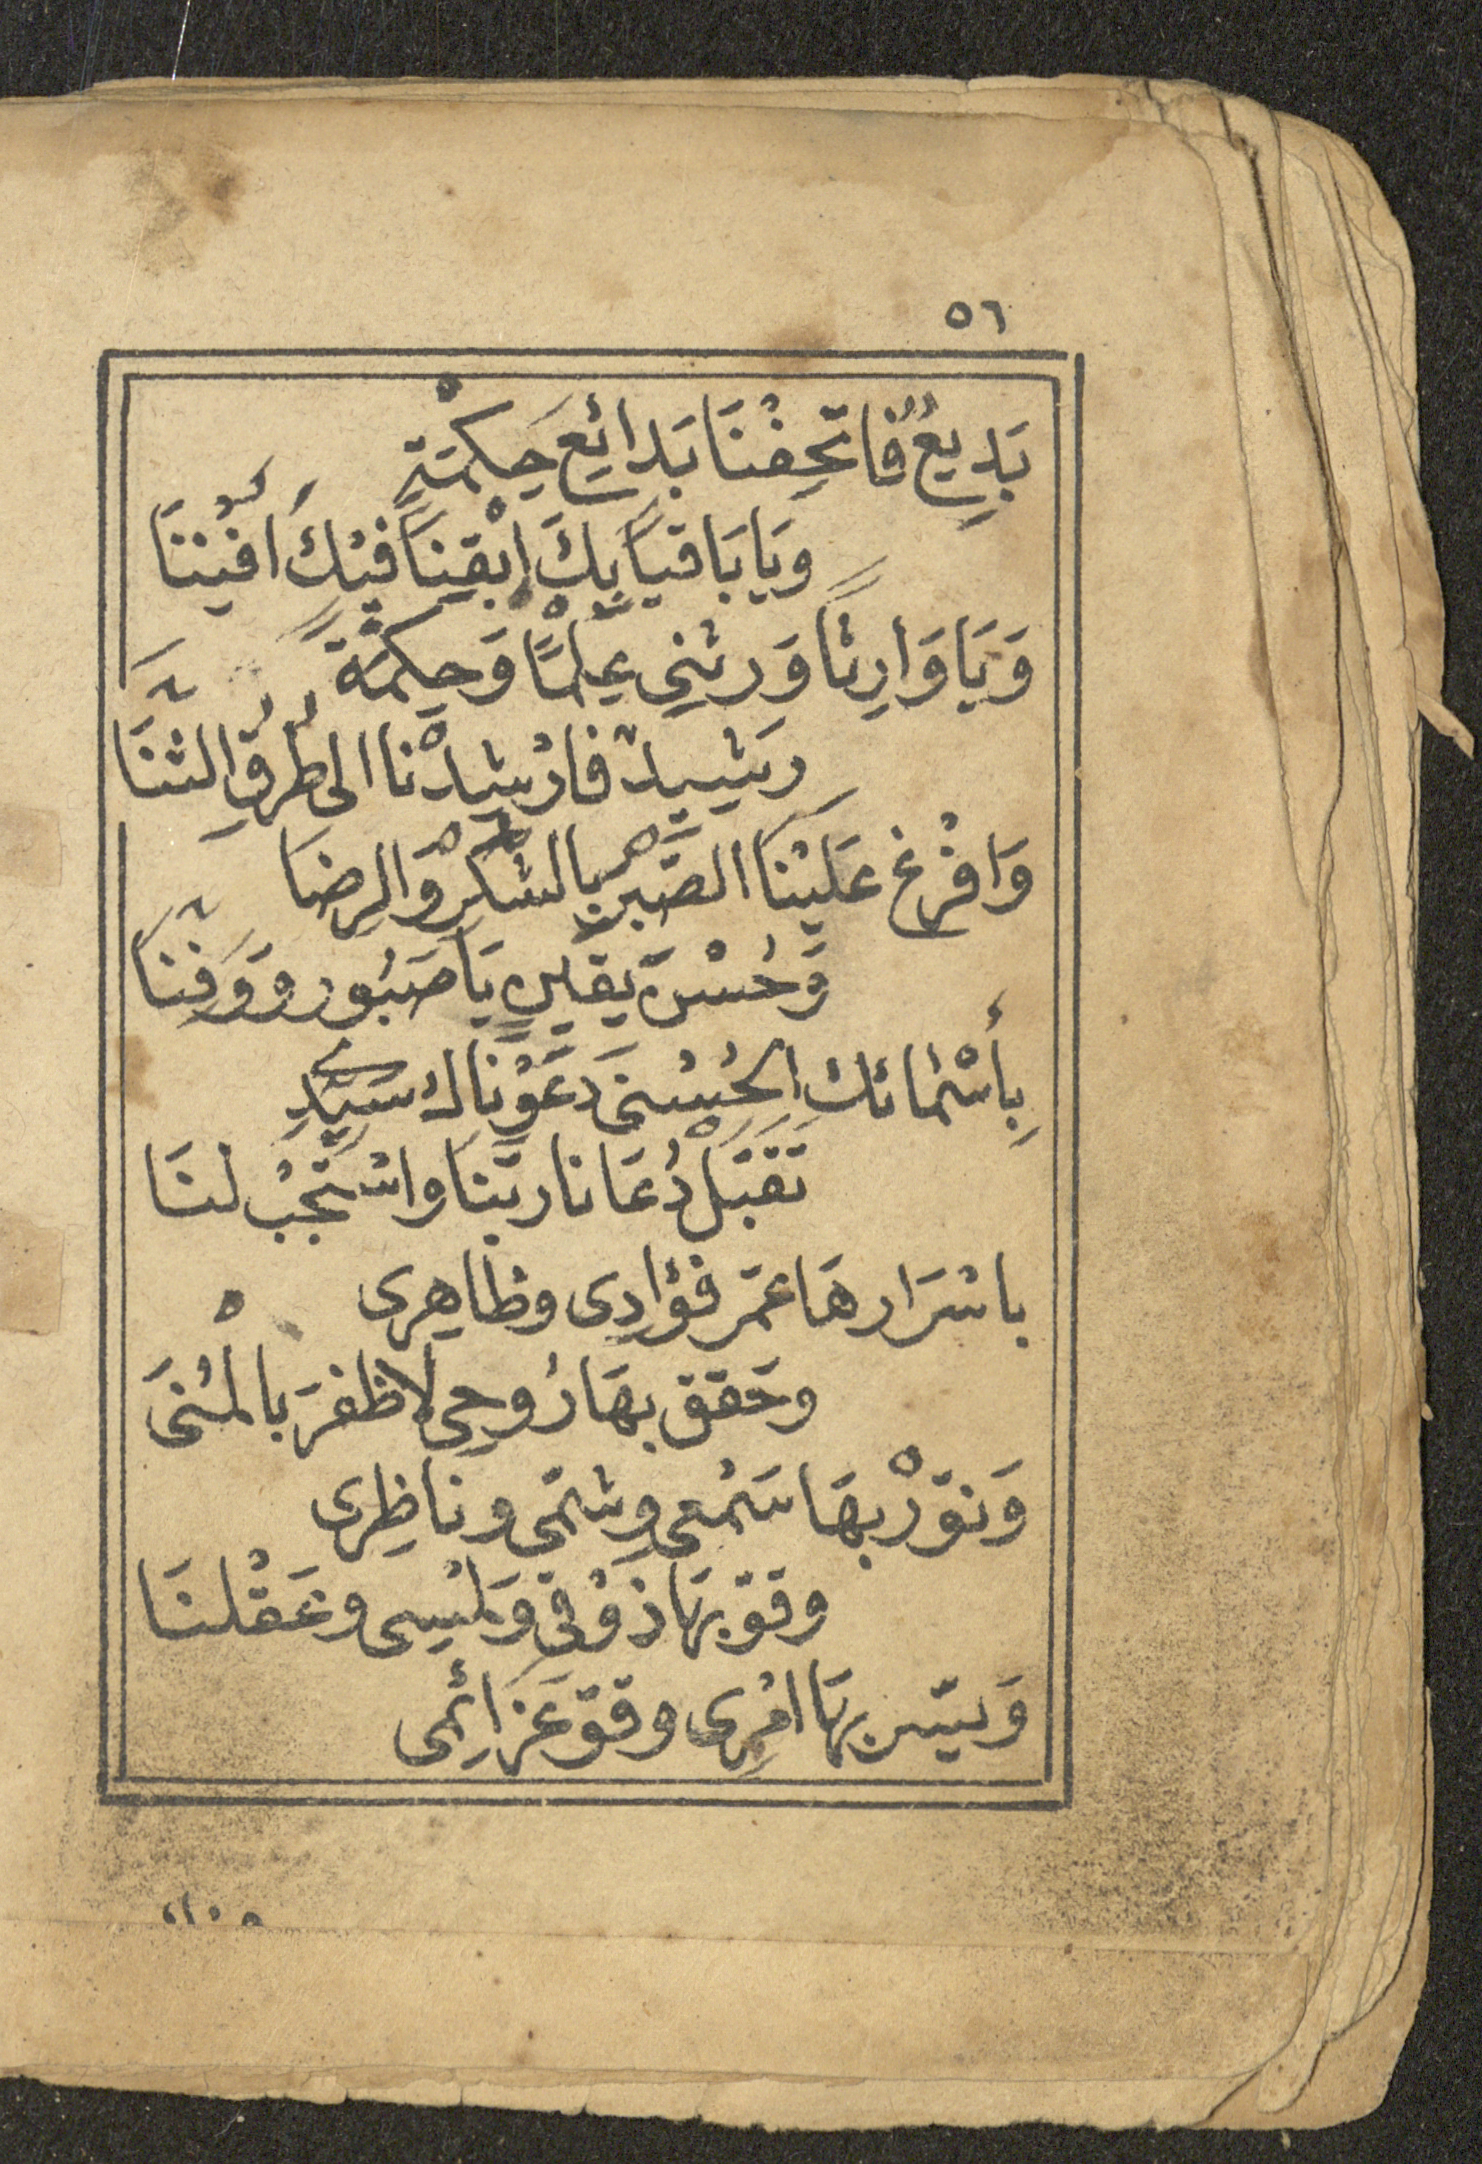 ٥٦
بَدِيعٌ فَاتْحِفْنَا بَدَائِعَ حِكْمَةٍ
وَيَا بَاقيًا بِكَ اَبْقِنَا فيْكَ اَفْنِنَا
وَيَا وَارِثاً وَرثني عِلْمًا وَحِكْمَةً
رَشيدٌ فَارْشِدْنا الى طُرُقِ الثنَّا
وَافْرُغ عَلَيْنَا الصَّبْرَ بالشكْرِ وَالرِضَا
وَحُسْن يَقينٍ يَا صَبُور وَوَفِّنَا
بِأسْمَائك الحُسْنى دَعَوْنَاكَ سَيّدِي
تَقَبَّلْ دُعَانا ربّنَا واسْتَجِبْ لنَا
باسْرَارهَا عَمّر فؤادِى وظاهِرى
وحَقق بهَا رُوحِى لاظفرَ بالْمُنىَ
وَنَوّرْ بهَا سَمْعى وشمّى وناظِرى
وقوّ بهَا ذَوْقى وَلمْسِى وعَقْلنَا
وَيسّر بهَا امْرِى وقوّ عَزَائِمى